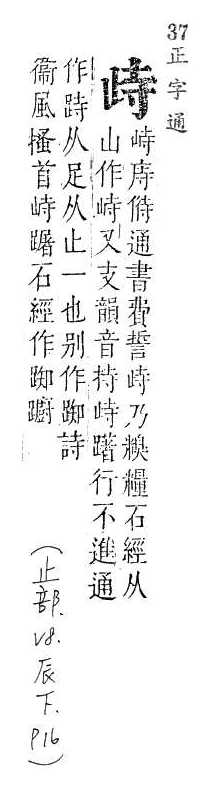 37
正字通
歭
峙庤偫通書費誓歭乃糗糧石經从
山作峙又支韻音持歭躇行不進通
作跱从足从止一也别作踟詩
衞風搔首歭躇石經作踟躕
(止部.V8.辰下.P16)